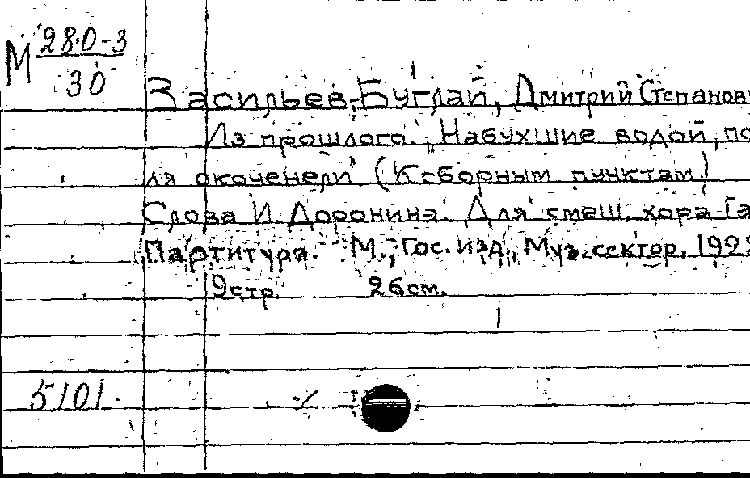 М 280-3
30
Васильев-Буглай, Дмитрий Степанов
Из прошлого. „Набухшие водой, по
ля окоченели" (К сборным пунктам)
Слова И. Доронина. Для смеш. хора
Партитура. М., Гос. изд., Муз. сектор, 192
9 стр. 26 см.
5101.